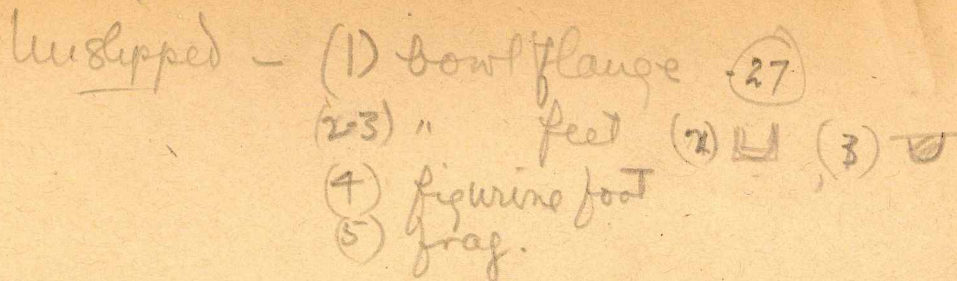 Unslipped - (1) bowl flange - 27
(2-3) " feet (2) (3)
(4) figurine foot
(5) frag.